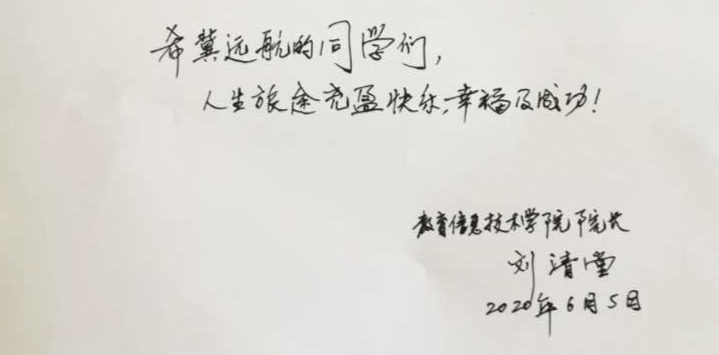 希冀远航的同学们，
人生旅途充盈快乐、幸福及成功！
教育信息技术学院院长
刘清堂
2020年6月5日